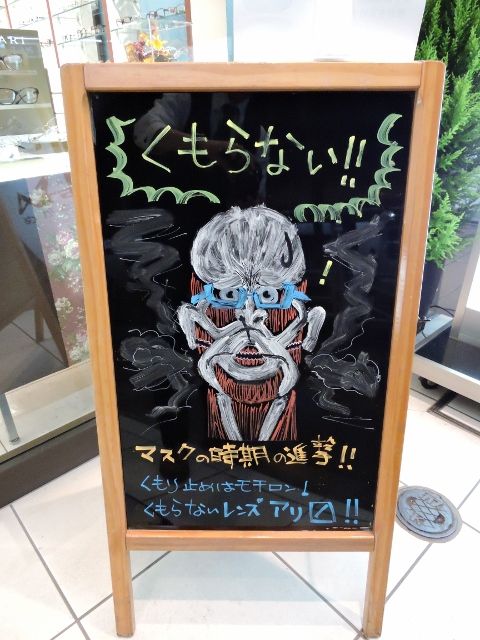 ART
くもらない!!
!
マスクの時期の進撃!!
くもり止めはモチロン♩
くもらないレンズ アリ〼!!